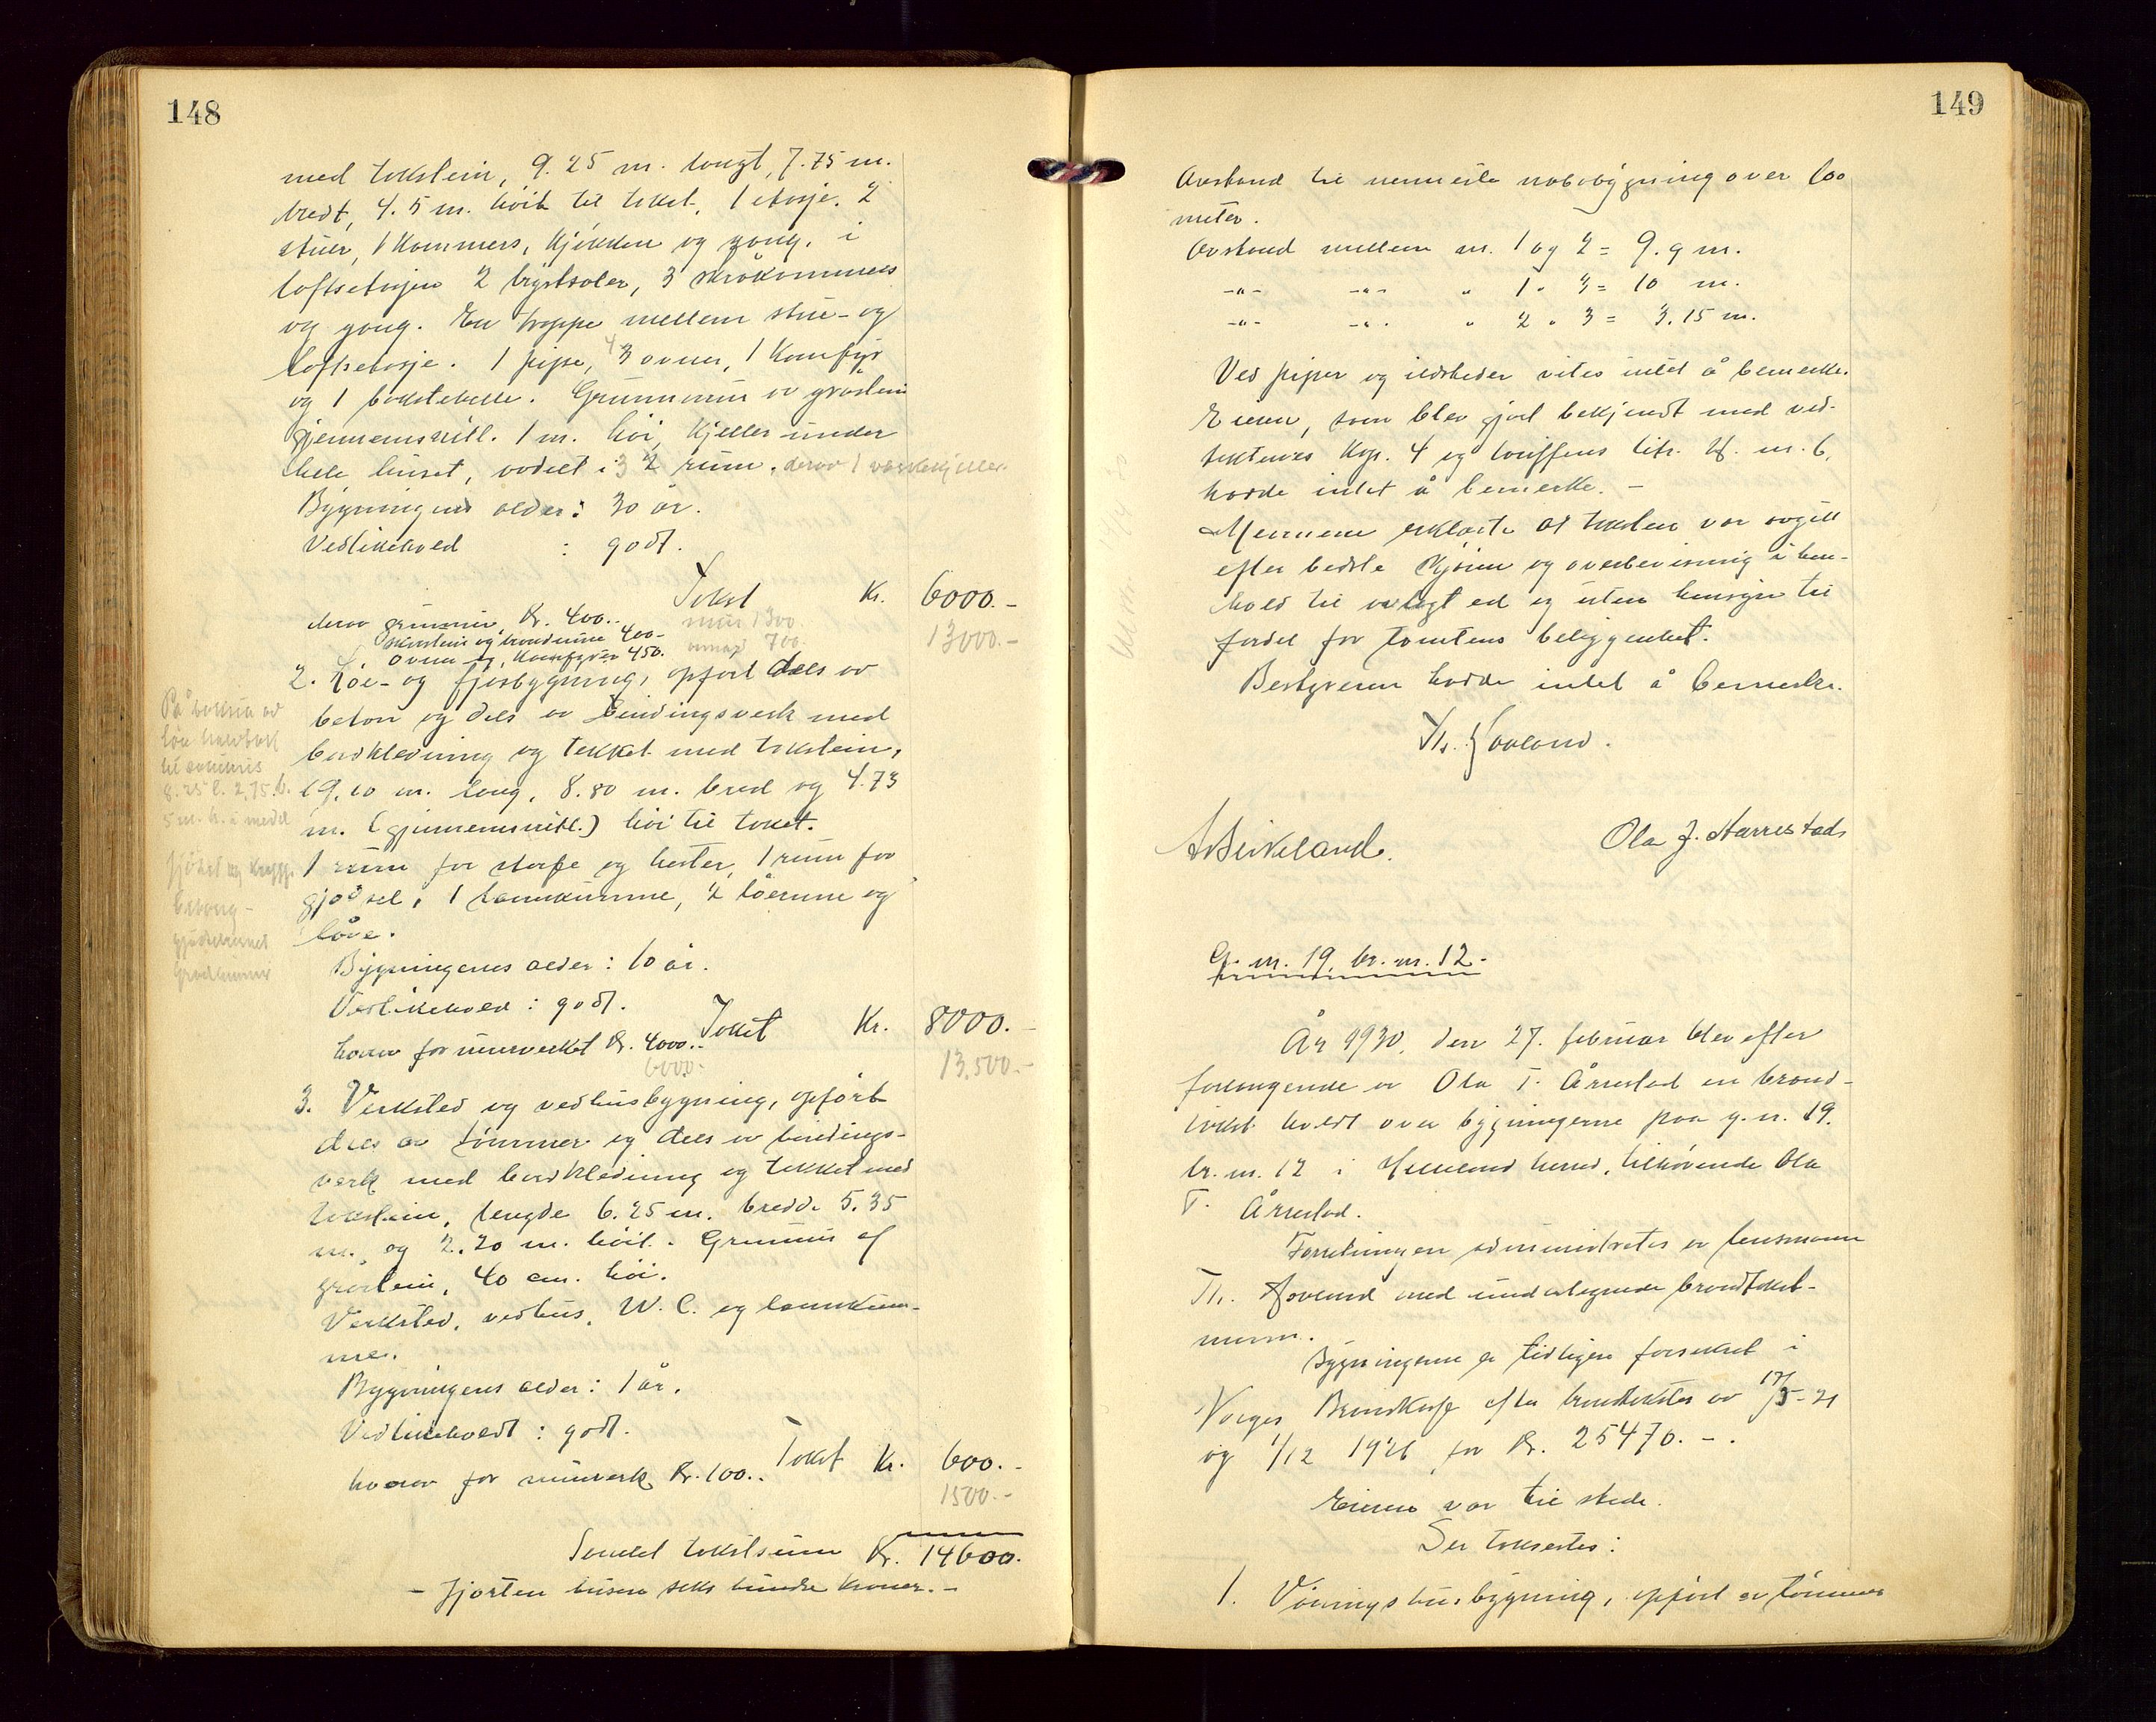 148
med takstein, 9.25 m. langt, 7.75 m.
bredt, 4.5 m. høit til taket. 1 etasje. 2
stuer, 1 kammers, kjøkken og gang. i
loftsetasjen 2 brystsaler, 3 skråkammers
og gang. En trappe mellem stue- og
loftsetasje. 1 pipe, 4 3 ovner, 1 komfyr
og 1 bakstehelle. Grunnmur av gråstein
gjennemsnitl. 1 m. høi, kjeller under
hele huset, avdelt i 3 2 rum. derav 1 vaskekjeller.
Bygningens alder: 30 år.
Vedlikehold : godt.
Takst Kr. 6000.-
derav grunnmur Kr. 400.- mur 1300.
13000.-
Skorstein og brandmur 400.- 700.
ovner og komfyrer 450.
2. Løe- og fjøsbygning, opført dels av
beton og dels av bindingsverk med
bordkledning og tekket med takstein,
19.10 m. lang, 8.80 m. bred og 4.73
m. (gjennemsnitl.) høi til taket.
1 rum for storfe og hester, 1 rum for
gjødsel, 1 lannkumme, 2 løerum og
låve.
Bygningens alder: 10 år.
Vedlikehold: godt.
Takst Kr. 8000.-
hvorav for murverket Kr. 4000.-
6000.- 13.500.-
På
løe halvtak
8.25 l. 2.75 b.
5 m. h. i medel
3. Verksted og vedhusbygning, opført
dels av tømmer og dels av bindings-
verk med bordkledning og tekket med
takstein, lengde 6.25 m. bredde 5.35
m. og 2.20 m. høit. Grunnmur af
gråstein, 40 cm. høi.
Verksted, vedhus, W.C. og lannkum-
me.
Bygningens alder: 1 år.
Vedlikeholdt: godt.
Takst Kr. 600.-
hvorav for murverk Kr. 100.-
1500.-
Samlet takstsum Kr. 14600.
- Fjorten tusen seks hundre kroner. -
149
Avstand til nermeste nabobygning over 100
meter.
Avstand mellem nr. 1 og 2 = 9.9 m.
-"- -"- " 1 " 3 = 10 m.
-"- -"- " 2 " 3 = 3.15 m.
Ved piper og ildsteder vites intet å bemerke.
Eieren, som blev gjort bekjendt med ved-
tektenes Kap. 4 og tariffens litr. H. nr. 6,
hadde intet å bemerke. -
Mennene erklærte at taksten var avgitt
efter bedste skjønn og overbevisning i hen-
hold til avlagt ed og uten hensyn til
fordel for tomtens beliggenhet.
Bestyreren hadde intet å bemerke.
Th. Aavland.
A Birkeland. Ola J. Harrestad
G. nr. 19, br. nr. 12.
År 1930, den 27. februar blev efter
forlangende av Ola T. Årrestad en brand-
takst holdt over bygningerne paa g. nr. 19.
br. nr. 12 i Helleland herred, tilhørende Ola
T. Årrestad.
Forretningen administrertes av lensmann
Th. Aavland med undertegnede brandtakst-
menn.
Bygningerne er tidligere forsikret i
Norges Brandkasse efter brandtakster av 17/5-21
og 1/12 1926 for Kr. 25470.-.
Eieren var til stede.
Der takseres:
1. Våningshusbygning, opført av tømmer